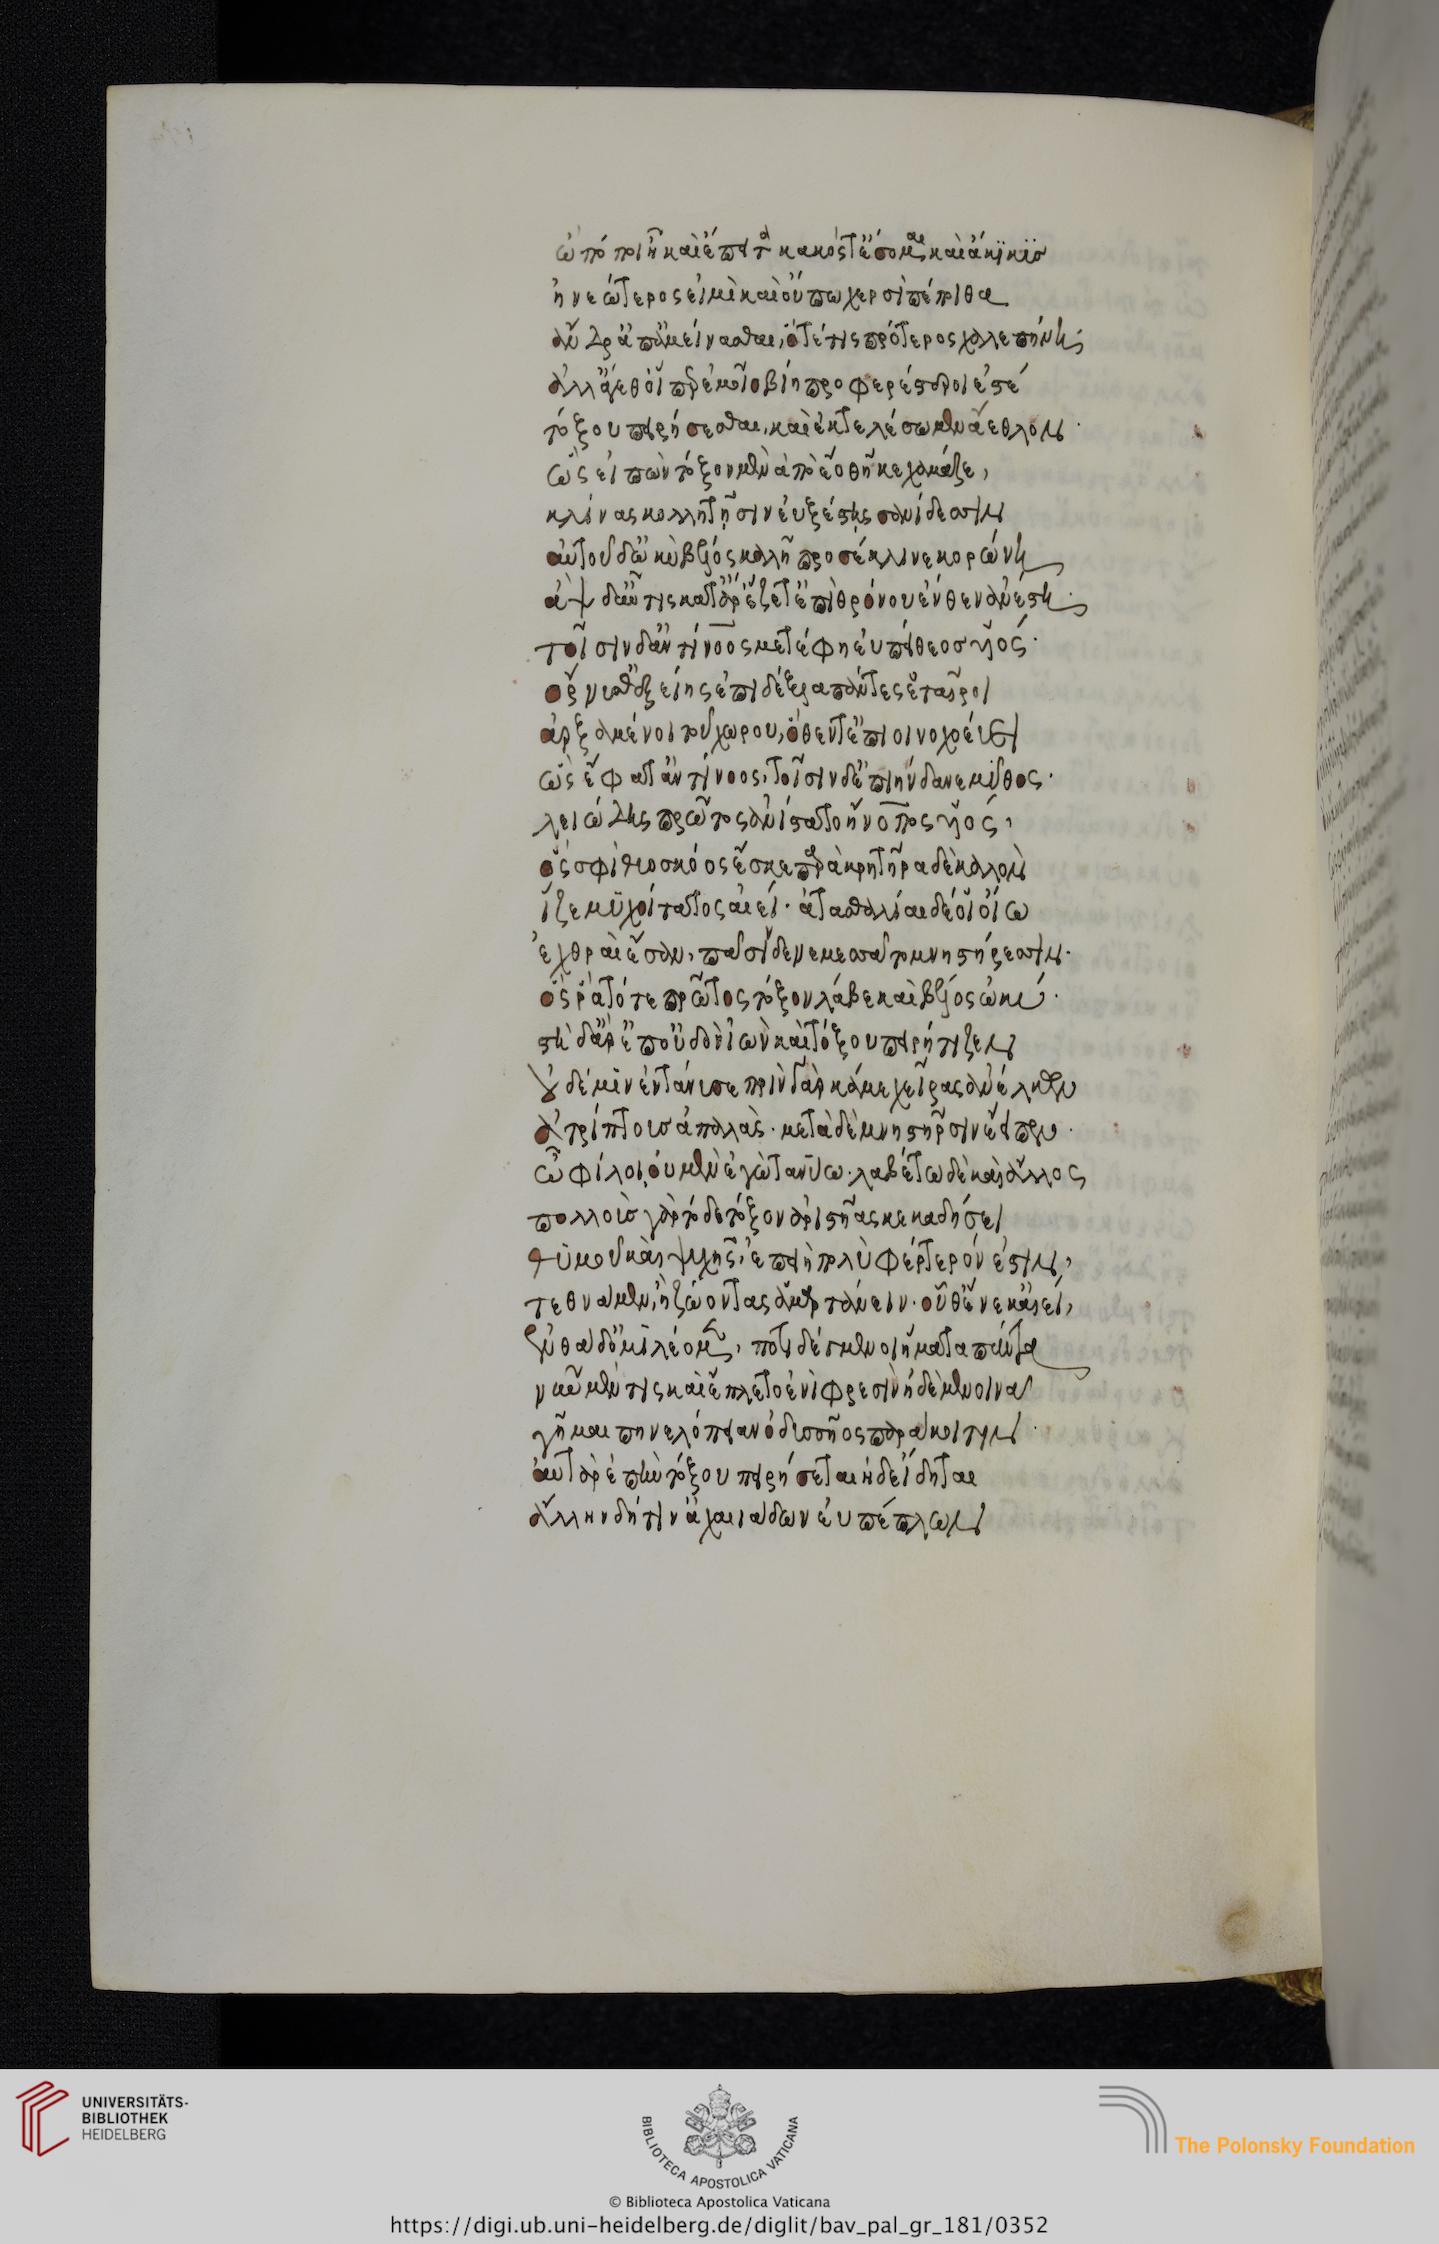 ὢ πόποι ἦ καὶ ἔπειτα κακός τ' ἔσομαι καὶ ἄκικυς
ἠὲ νεώτερος εἰμὶ καὶ οὔπω χερσὶ πέποιθα
ἄνδρ' ἀπαμύνασθαι, ὅτε τις πρότερος χαλεπήνῃ
ἀλλ' ἄγεθ' οἵπερ ἐμεῖο βίῃ προφερέστεροι ἐστέ
τόξου πειρήσασθαι, καὶ ἐκτελέσωμεν ἄεθλον.
ὣς εἰπὼν τόξον μὲν ἀπὸ ἕο θῆκε χαμᾶζε,
κλίνας κολλητῇσιν ἐυξέστῃς σανίδεσσιν
αὐτοῦ δ' ὠκὺ βέλος καλῇ προσέκλινε κορώνῃ
ἂψ δ' αὖτις κατ' ἄρ' ἕζετ' ἐπὶ θρόνου ἔνθεν ἀνέστη.
τοῖσιν δ' ἀντίνοος μετέφη εὐπείθεος υἱός.
ὄρνυσθ' ἑξείης ἐπιδέξια πάντες ἑταῖροι
ἀρξάμενοι τοῦ χώρου, ὅθεν τ' ἐπιοινοχοεύει
ὣς ἔφατ' ἀντίνοος, τοῖσιν δ' ἐπιήνδανε μῦθος.
λειώδης πρῶτος ἀνίστατο οἴνοπος υἱός,
ὅς σφι θυοσκόος ἔσκε παρὰ κρητῆρα δὲ καλὸν
ἷζε μυχοίτατος αἰεί. ἀτασθαλίαι δέ οἱ οἴῳ
ἐχθραὶ ἔσαν, πᾶσιν δὲ νεμέσσα μνηστήρεσσιν.
ὅς ῥα τότε πρῶτος τόξον λάβε καὶ βέλος ὠκύ.
στῆ δ' ἄρ' ἐπ' οὐδὸν ἰὼν καὶ τόξου πειρήτιζεν
οὐδέ μιν ἐντάνυσε πρὶν γὰρ κάμε χεῖρας ἀνέλκων
ἀτρίπτους ἁπαλάς. μετὰ δὲ μνηστῆρσιν ἔειπεν.
ὦ φίλοι, οὐ μὲν ἐγὼ τανύω. λαβέτω δὲ καὶ ἄλλος
πολλοὺς γὰρ τόδε τόξον ἀριστῆας κεκαδήσει
θυμοῦ καὶ ψυχῆς, ἐπειὴ πολὺ φέρτερόν ἐστιν,
τεθνάμεν, ἢ ζώοντας ἁμαρτάνειν. οὗθ' ἕνεκ' αἰεί,
ἐνθάδ' ὁμιλέομεν, ποτιδέγμενοι ἤματα πάντα
νῦν μέν τις καὶ ἔλπετ' ἐνὶ φρεσὶν ἠδὲ μενοινᾷ
γῆμαι πηνελόπειαν ὀδυσσῆος παράκοιτιν.
αὐτὰρ ἐπὴν τόξου πειρήσεται ἠδὲ ἴδηται
ἄλλην δή τιν' ἀχαιϊάδων εὐπέπλων
UNIVERSITÄTS-
BIBLIOTHEK
HEIDELBERG
BIBLIOTECA APOSTOLICA VATICANA
The Polonsky Foundation
© Biblioteca Apostolica Vaticana
https://digi.ub.uni-heidelberg.de/diglit/bav_pal_gr_181/0352